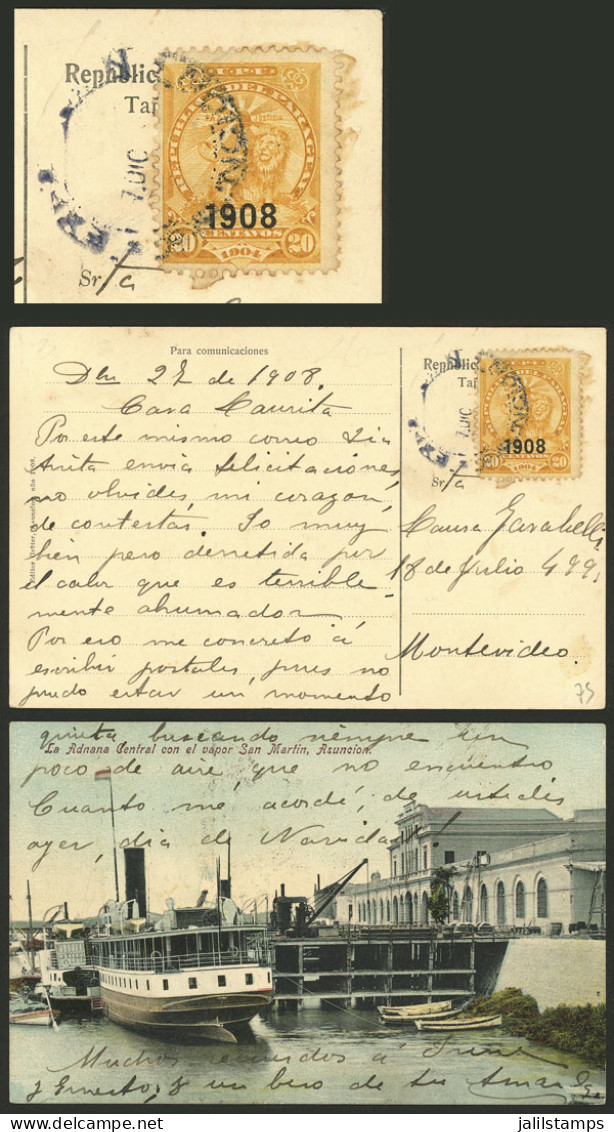 U.P.U.
Repŭblic
REPUBLICA DEL PARAGUAY
Tar
PAZ Y JUSTICIA
7.DIC
1908
20 CENTAVOS 20
1904
Sr/a
Para comunicaciones
27 de 1908.
Cara Laurita
Por este mismo correo Tia
Anita envia felicitaciones,
no olvides, mi corazon,
de contestar. Yo muy
bien pero derretida por
el calor que es terrible-
mente ahumador
Por eso me concreto á
escribir postales, pues no
puedo estar un momento
Repŭblic
Tar
7.DIC
1908
20 CENTAVOS 20
1904
Sr/a
Laura
18 de Julio 499,
Montevideo.
75
quieta buscando siempre un
La Adnana Central con el vapor San Martin, Asuncion.
poco de aire, que no encuentro
Cuanto me acordé, de ustedes
ayer, dia de Navidad!
Muchos recuerdos á Irene
y Ernesto, y un beso de tu
www.jalilstamps.com